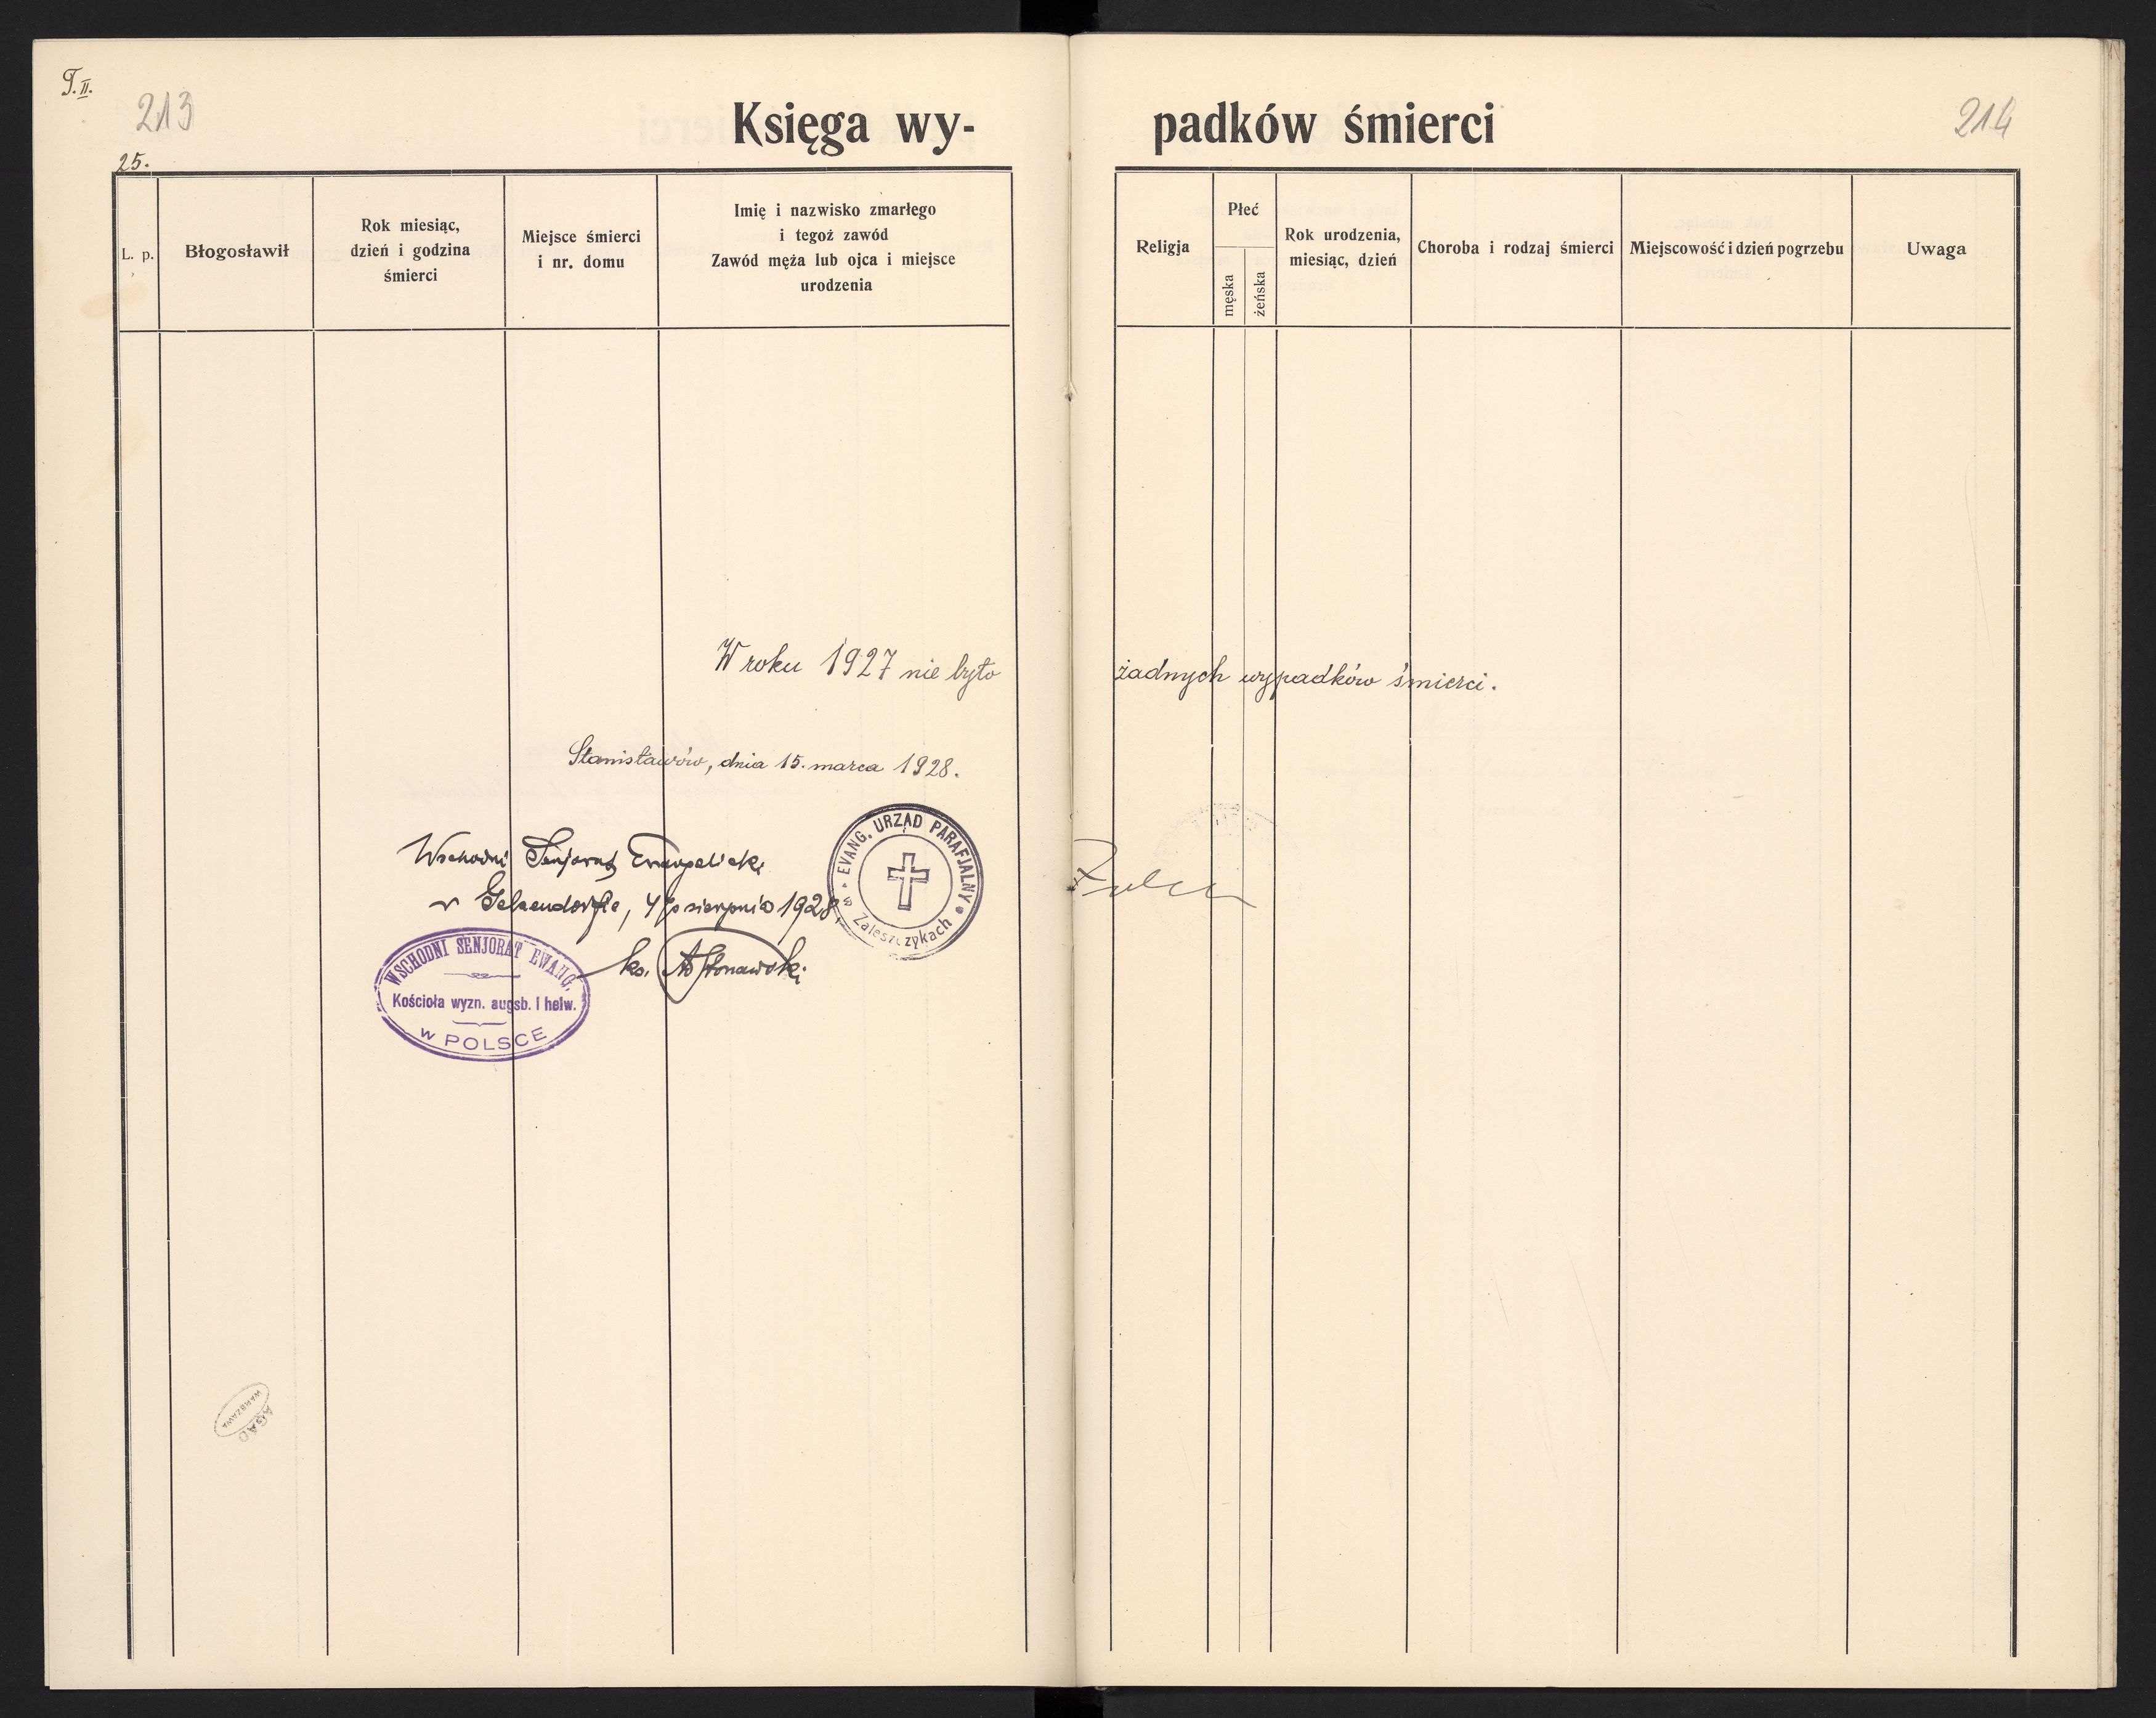 T. II.
213
214
25.
Księga wy-
padków śmierci
L. p.
Błogosławił
Rok miesiąc,
dzień i godzina
śmierci
Miejsce śmierci
i nr. domu
Imię i nazwisko zmarłego
i tegoż zawód
Zawód męża lub ojca i miejsce
urodzenia
Religja
Płeć
męska
żeńska
Rok urodzenia,
miesiąc, dzień
Choroba i rodzaj śmierci
Miejscowość i dzień pogrzebu
Uwaga
W roku 1927 nie było żadnych wypadków śmierci.
Stanisławów, dnia 15. marca 1928.
EVANG. URZĄD PARAFJALNY
w Zaleszczykach
Wschodni Senjorat Ewangelicki
w Gelsendorfie, sierpnia 1928
ks.
WSCHODNI SENJORAT EWANG.
Kościoła wyzn. augsb. i helw.
w POLSCE
AGAD
WARSZAWA